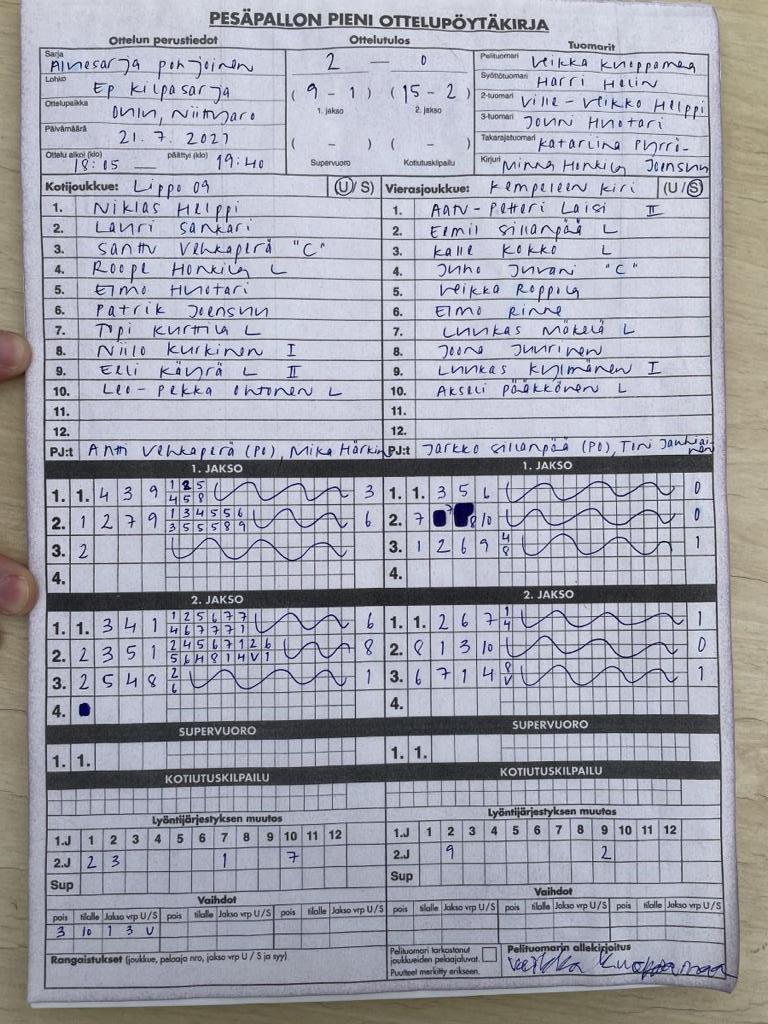 PESÄPALLON PIENI OTTELUPÖYTÄKIRJA
Ottelun perustiedot
Ottelutulos
Tuomarit
Sarja
Aluesarja pohjoinen
Lohko
Ep kilpasarja
Ottelupaikka
Oulu, Niittyaro
Päivämäärä
21.7.2021
Ottelu alkoi (klo) 18:05 — päättyi (klo) 19:40
2 — 0
( 9 - 1 ) ( 15 - 2 )
1. jakso 2. jakso
( - ) ( - )
Supervuoro Kotiutuskilpailu
Pelituomari Veikka Kuoppamaa
Syöttötuomari Harri Helin
2-tuomari Ville-Veikko Helppi
3-tuomari Jouni Huotari
Takarajatuomari Katariina
Kirjuri Minna Honkila Joensuu
Kotijoukkue: Lippo 09 (U/S)
1. Niklas Helppi
2. Lauri Sankari
3. Santtu Vehkaperä "C"
4. Roope Honkila L
5. Elmo Huotari
6. Patrik Joensuu
7. Topi Kurttila L
8. Niilo Kurkinen I
9. Eeli Käyrä L II
10. Leo-Pekka Ohtonen L
11.
12.
PJ:t Antti Vehkaperä (PJ), Mika Härkin
Vierasjoukkue: Kempeleen Kiri (U/S)
1. Aatu-Petteri Laisi II
2. Eemil Sillanpää L
3. Kalle Kokko L
4. Juho Juvani "C"
5. Veikka Roppola
6. Elmo Rinne
7. Luukas Mäkelä L
8. Joona Juurinen
9. Luukas Kylmänen I
10. Akseli Pääkkönen L
11.
12.
PJ:t Jarkko Sillanpää (PJ), Toni
1. JAKSO
1. 1. 4 3 9 1 2 5 3
4 5 8
2. 1 2 7 9 1 3 4 5 5 6 6
3 5 5 5 8 9
3. 2
4.
1. JAKSO
1. 1. 3 5 6 0
2. 7 8 10 0
3. 1 2 6 9 4 1
8
4.
2. JAKSO
1. 1. 3 4 1 1 2 5 6 7 7 6
4 6 7 7 7 1
2. 2 3 5 1 2 4 5 6 7 1 2 6 8
5 6 4 8 1 4 V 1
3. 2 5 4 8 2 1
6
4.
2. JAKSO
1. 1. 2 6 7 1 1
4
2. 8 1 3 10 0
3. 6 7 1 4 8 1
V
4.
SUPERVUORO
1. 1.
SUPERVUORO
1. 1.
KOTIUTUSKILPAILU
KOTIUTUSKILPAILU
Lyöntijärjestyksen muutos
1.J 1 2 3 4 5 6 7 8 9 10 11 12
2.J 2 3 1 7
Sup
Lyöntijärjestyksen muutos
1.J 1 2 3 4 5 6 7 8 9 10 11 12
2.J 9 2
Sup
Vaihdot
pois tilalle Jakso vrp U/S pois tilalle Jakso vrp U/S pois tilalle Jakso vrp U/S
3 10 1 3 U
Vaihdot
pois tilalle Jakso vrp U/S pois tilalle Jakso vrp U/S pois tilalle Jakso vrp U/S
Rangaistukset (joukkue, pelaaja nro, jakso vrp U / S ja syy)
Pelituomari tarkastanut
joukkueiden pelaajaluvat.
Puutteet merkitty erikseen.
Pelituomarin allekirjoitus
Veikka Kuoppamaa